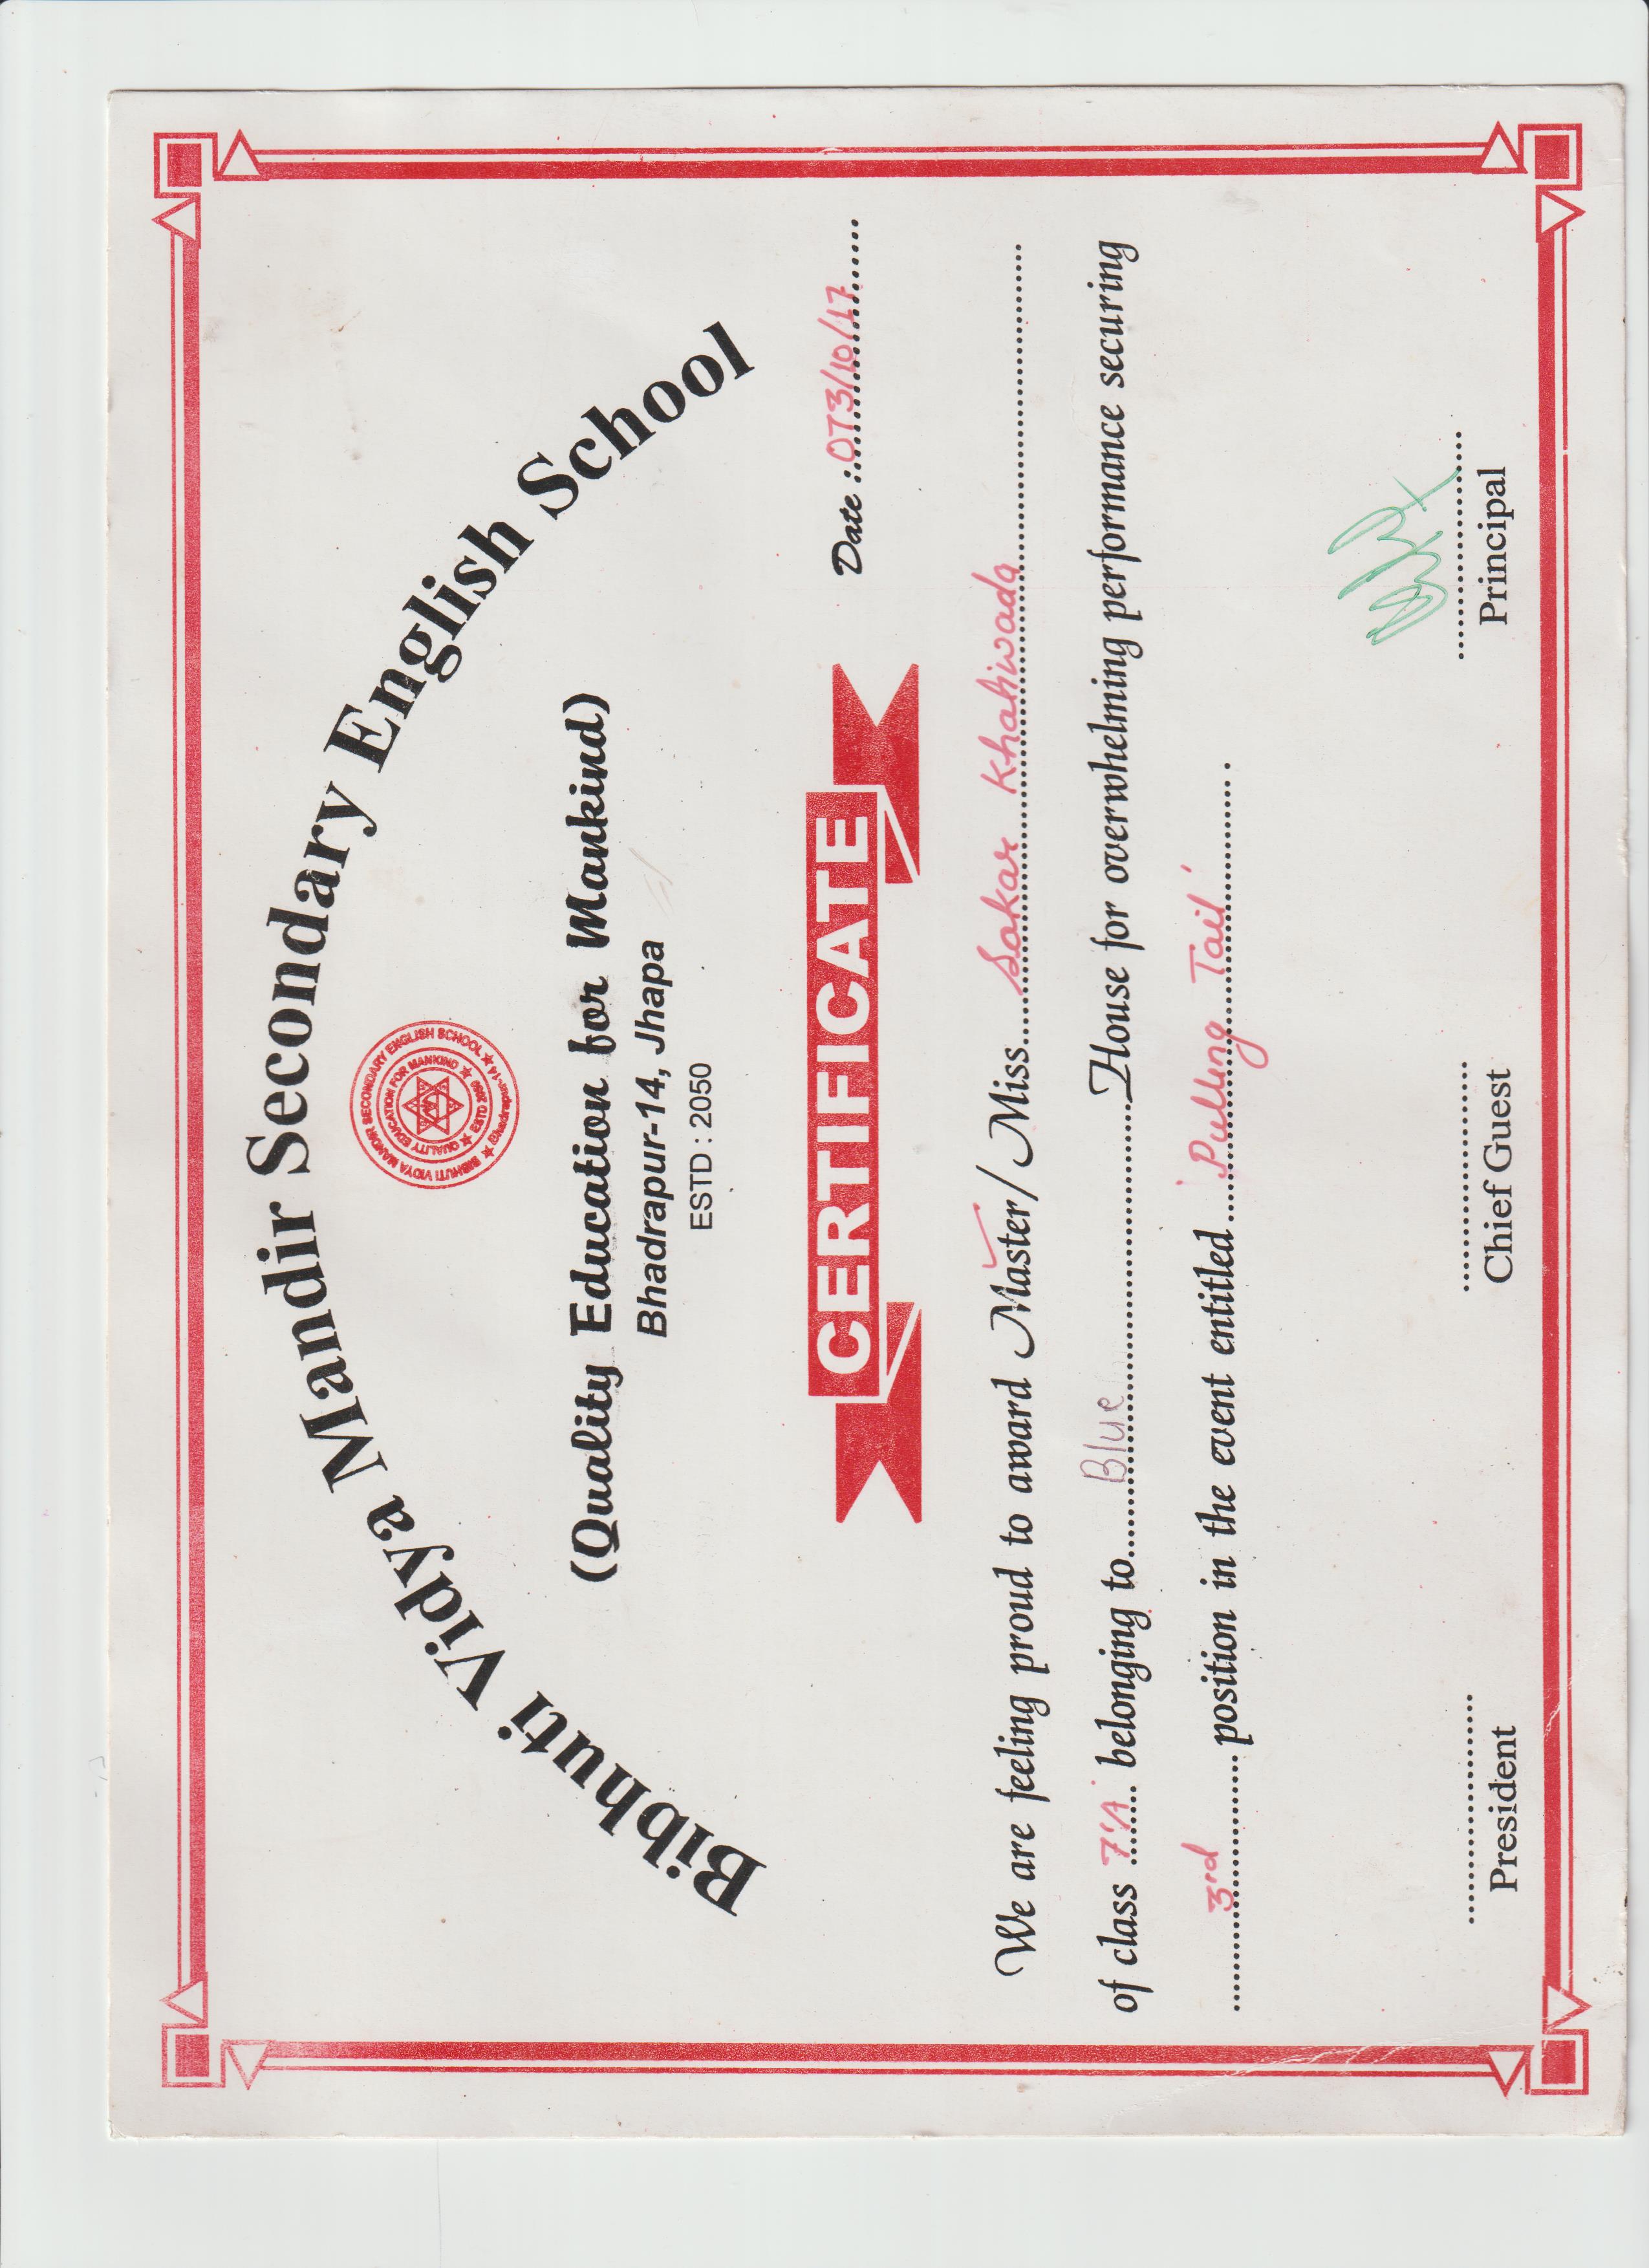 Bibhuti Vidya Mandir Secondary English School
BIBHUTI VIDYA MANDIR SECONDARY ENGLISH SCHOOL
QUALITY EDUCATION FOR MANKIND
ESTD 2050
Bhadrapur-14
(Quality Education for Mankind)
Bhadrapur-14, Jhapa
ESTD : 2050
CERTIFICATE
Date : 073/10/17
We are feeling proud to award Master/ Miss Sakar Khatiwada
of class 7'A' belonging to Blue House for overwhelming performance securing
3rd position in the event entitled 'Pulling Tail'.
President
Chief Guest
Principal